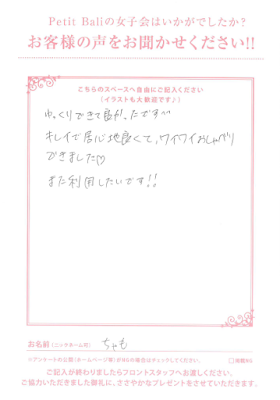 Petit Baliの女子会はいかがでしたか?
お客様の声をお聞かせください!!
こちらのスペースへ自由にご記入ください
(イラストも大歓迎です♪)
ゆっくりできて良かったです^^
キレイで居心地良くて、ワイワイおしゃべり
できました♡
また利用したいです!!
お名前(ニックネーム可) ちゃも
※アンケートの公開(ホームページ等)がNGの場合はチェックしてください。 □掲載NG
ご記入が終わりましたらフロントスタッフへお渡しください。
ご協力いただきました御礼に、ささやかなプレゼントをさせていただきます。